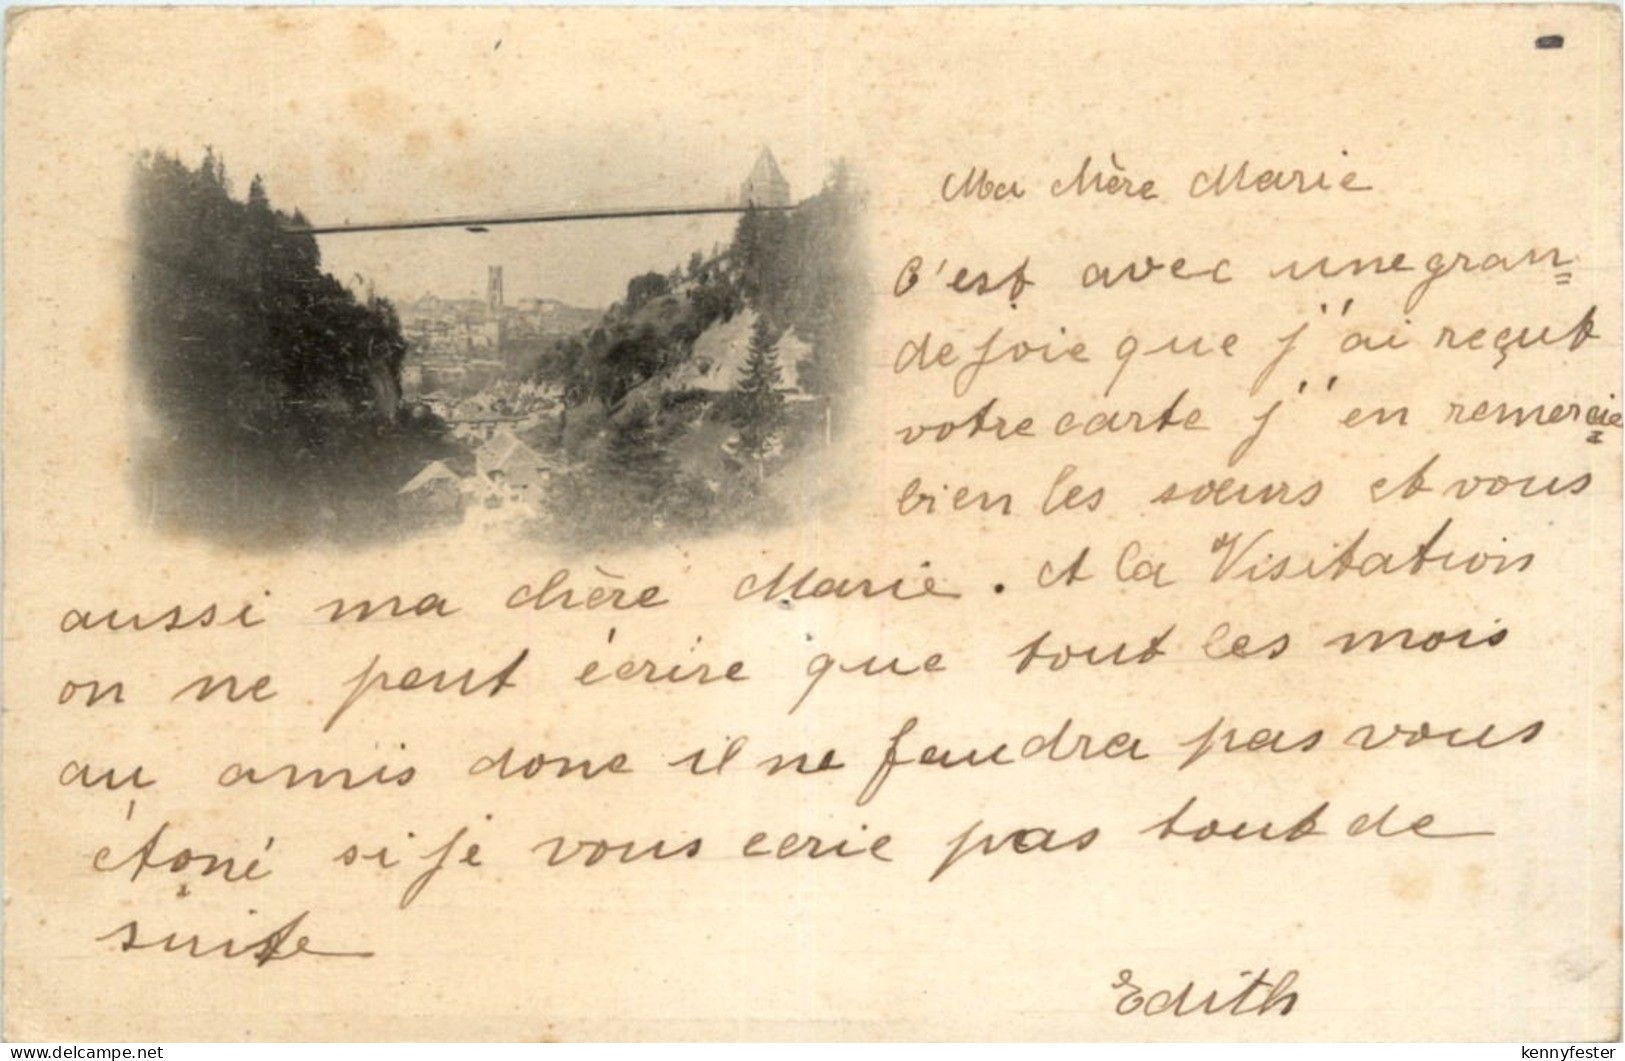 Ma chère Marie
C'est avec une gran=
de joie que j'ai reçut
votre carte j'en remercie
bien les sœurs et vous
aussi ma chère Marie. et la Visitation
on ne peut écrire que tout les mois
au amis donc il ne faudra pas vous
étoné si je vous ecrie pas tout de
suite
Edith
delcampe.net
kennyfester